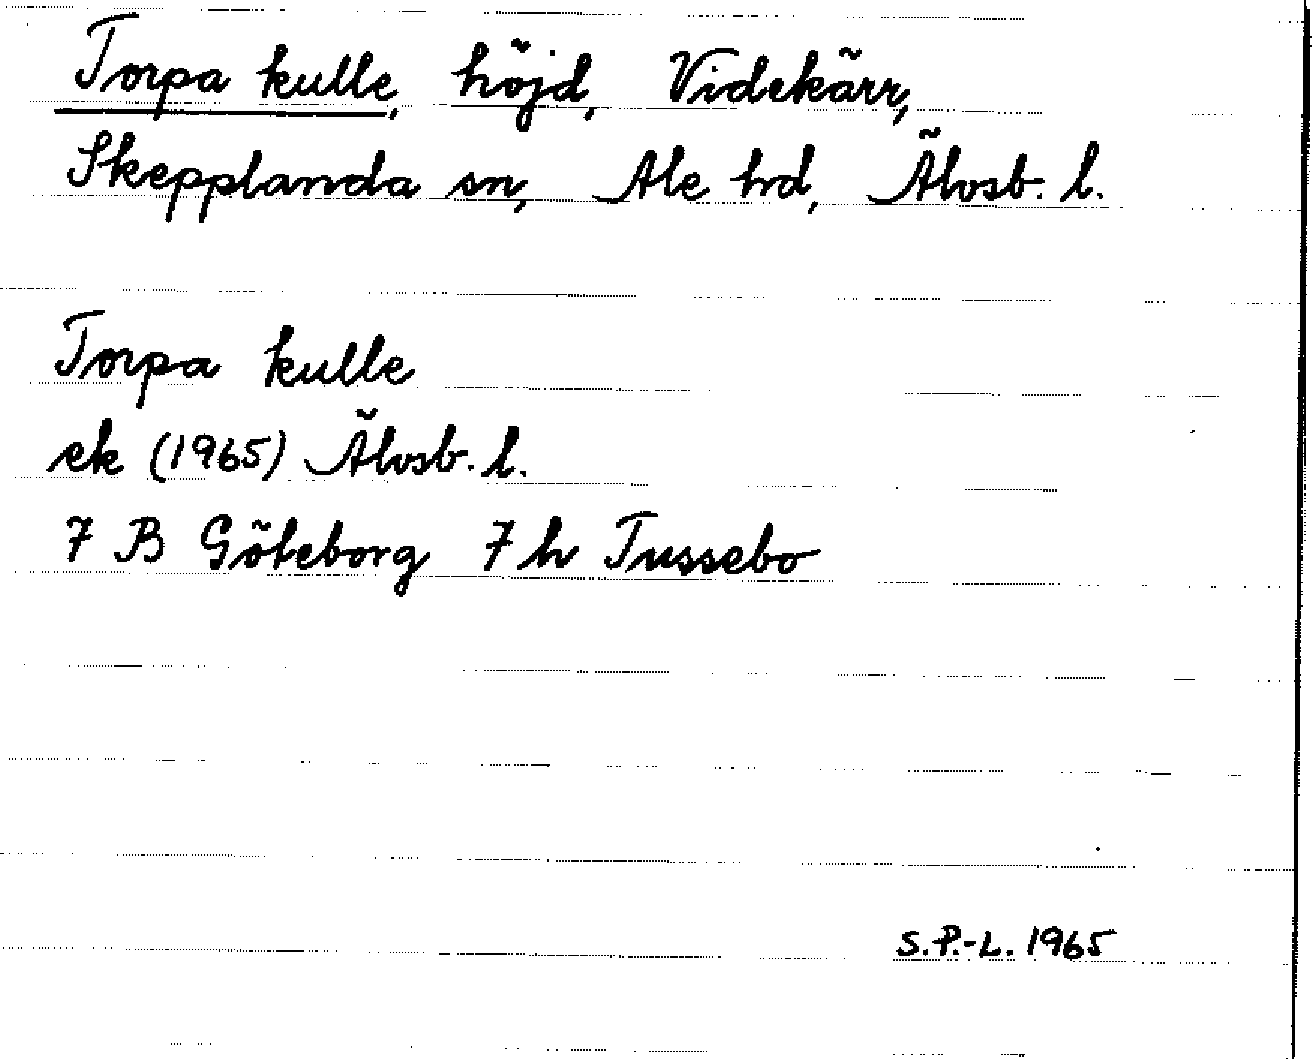 Torpa kulle, höjd, Videkärr,
Skepplanda sn, Ale hd, Älvsb. l.
Torpa kulle
ek (1965) Älvsb. l.
7 B Göteborg 7 h Tussebo
S.P.-L. 1965